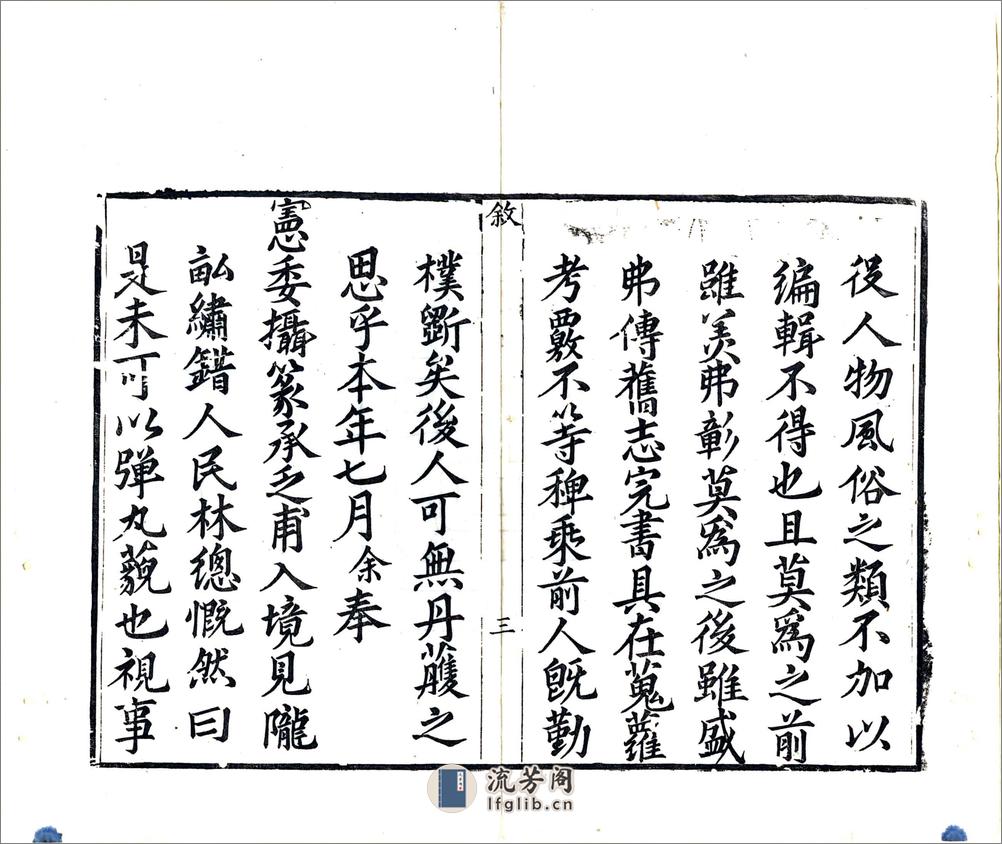 役人物風俗之類不加以
編輯不得也且莫爲之前
雖美弗彰莫爲之後雖盛
弗傳舊志完書具在蒐蘿
考覈不等稗乘前人旣勤
敘
三
樸斵矣後人可無丹雘之
思乎本年七月余奉
憲委攝篆承乏甫入境見隴
畝繡錯人民林總慨然曰
是未可以弹丸藐也視事
流芳阁
lfglib.cn